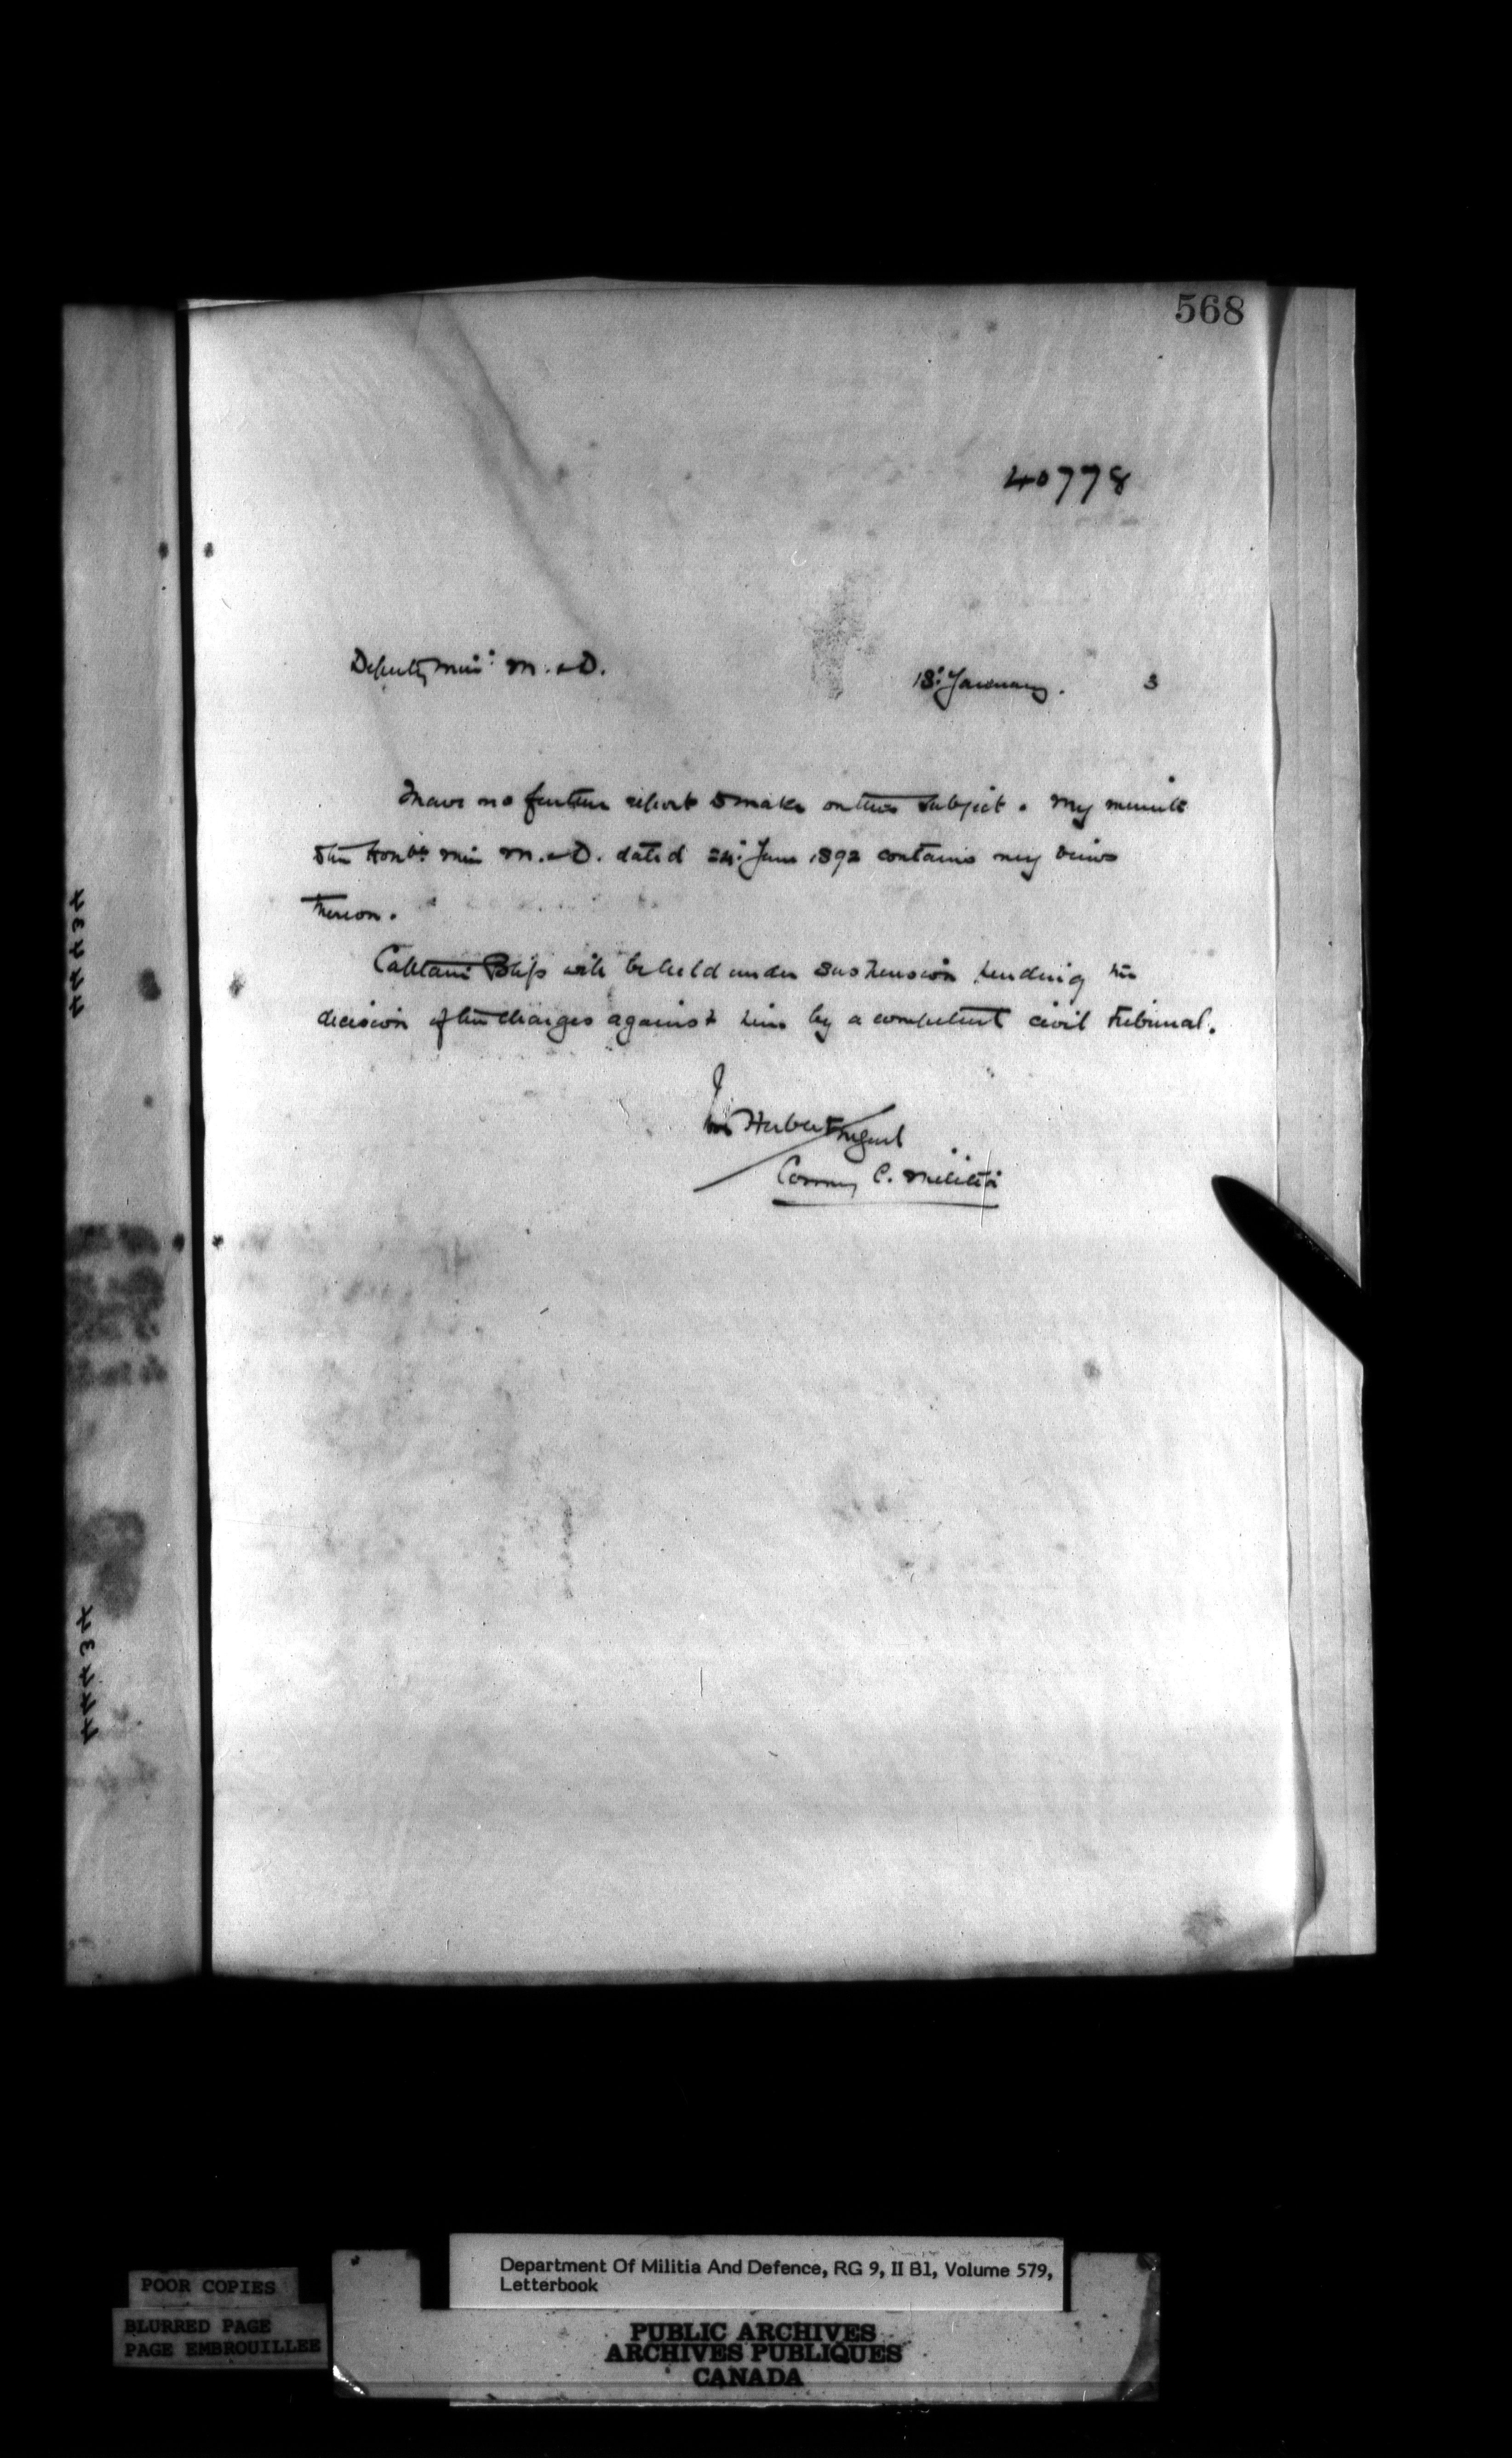 568
40778
Deputy Min: M. & D.
18: January. 3
I have no further report to make on this subject. My minute
to the Honble Min M. & D. dated 24: June 1892 contains my views
thereon.
Captain will be held under suspension pending the
decision of the charges against him by a competent civil tribunal.
Ivor Herbert
Comg C. Militia
44434
44434
POOR COPIES
BLURRED PAGE
PAGE EMBROUILLEE
Department Of Militia And Defence, RG 9, II B1, Volume 579,
Letterbook
PUBLIC ARCHIVES
ARCHIVES PUBLIQUES
CANADA